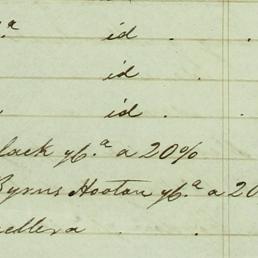 id
id
id
lack y Cª a 20%
Byrns Hooton y Cª a 20